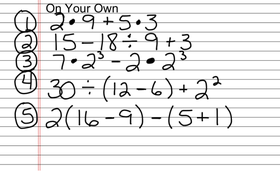 On Your Own
① 2 • 9 + 5 • 3
② 15 − 18 ÷ 9 + 3
③ 7 • 2³ − 2 • 2³
④ 30 ÷ (12 − 6) + 2²
⑤ 2(16 − 9) − (5 + 1)